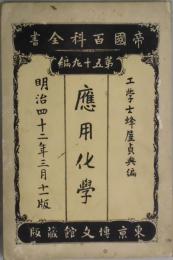 帝國百科全書
第五十九編
工學士蜂屋貞興編
應用化學
明治四十二年三月十一版
東京博文館蔵版